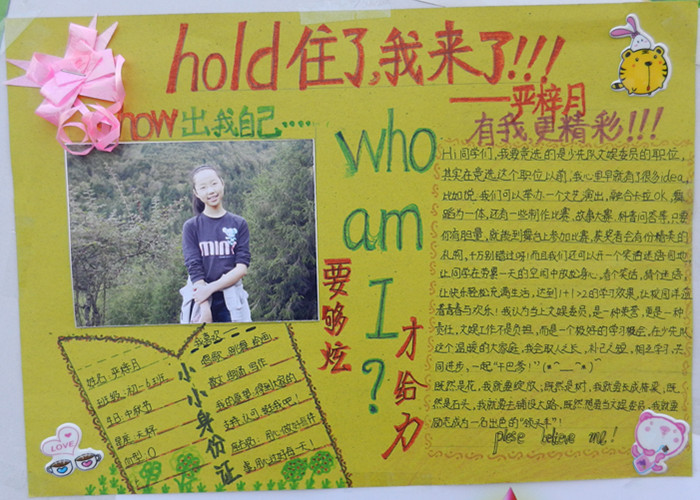 hold住了,我来了!!!
——严梓月
how出我自己……
有我更精彩!!!
who
am
I?
要够炫
才给力
mini
Hi 同学们,我要竞选的是少先队文娱委员的职位,
其实在竞选这个职位以前,我心里早就有了很多idea,
比如说:我们可以举办一个文艺演出,融合卡拉OK,舞
蹈为一体,还有一些制作比赛,故事大赛,科普问答等,只要
你有胆量,就能到舞台上参加比赛,获奖者会有份精美的
礼物,千万别错过呀!而且我们还可以开一个笑话迷语园地,
让同学在劳累一天的空闲中放松身心,看个笑话,猜个迷语,
让快乐轻松充满生活,达到1+1>2的学习效果,让校园洋溢
着青春与欢乐!我认为当上文娱委员,是一种荣誉,更是一种
责任,文娱工作不是负担,而是一个极好的学习机会,在少先队
这个温暖的大家庭,我会取人之长,补己之短,相互学习,共
同进步,一起“干巴爹”!(*^__^*)
既然是花,我就要绽放;既然是树,我就要长成栋梁;既
然是石头,我就要去铺设大路;既然想要当文娱委员,我就要
励志成为一名出色的“领头羊”!
please believe me!
小小身份证
姓名:严梓月
班级:初一、6班
生日:中秋节
血型:O
LOVE